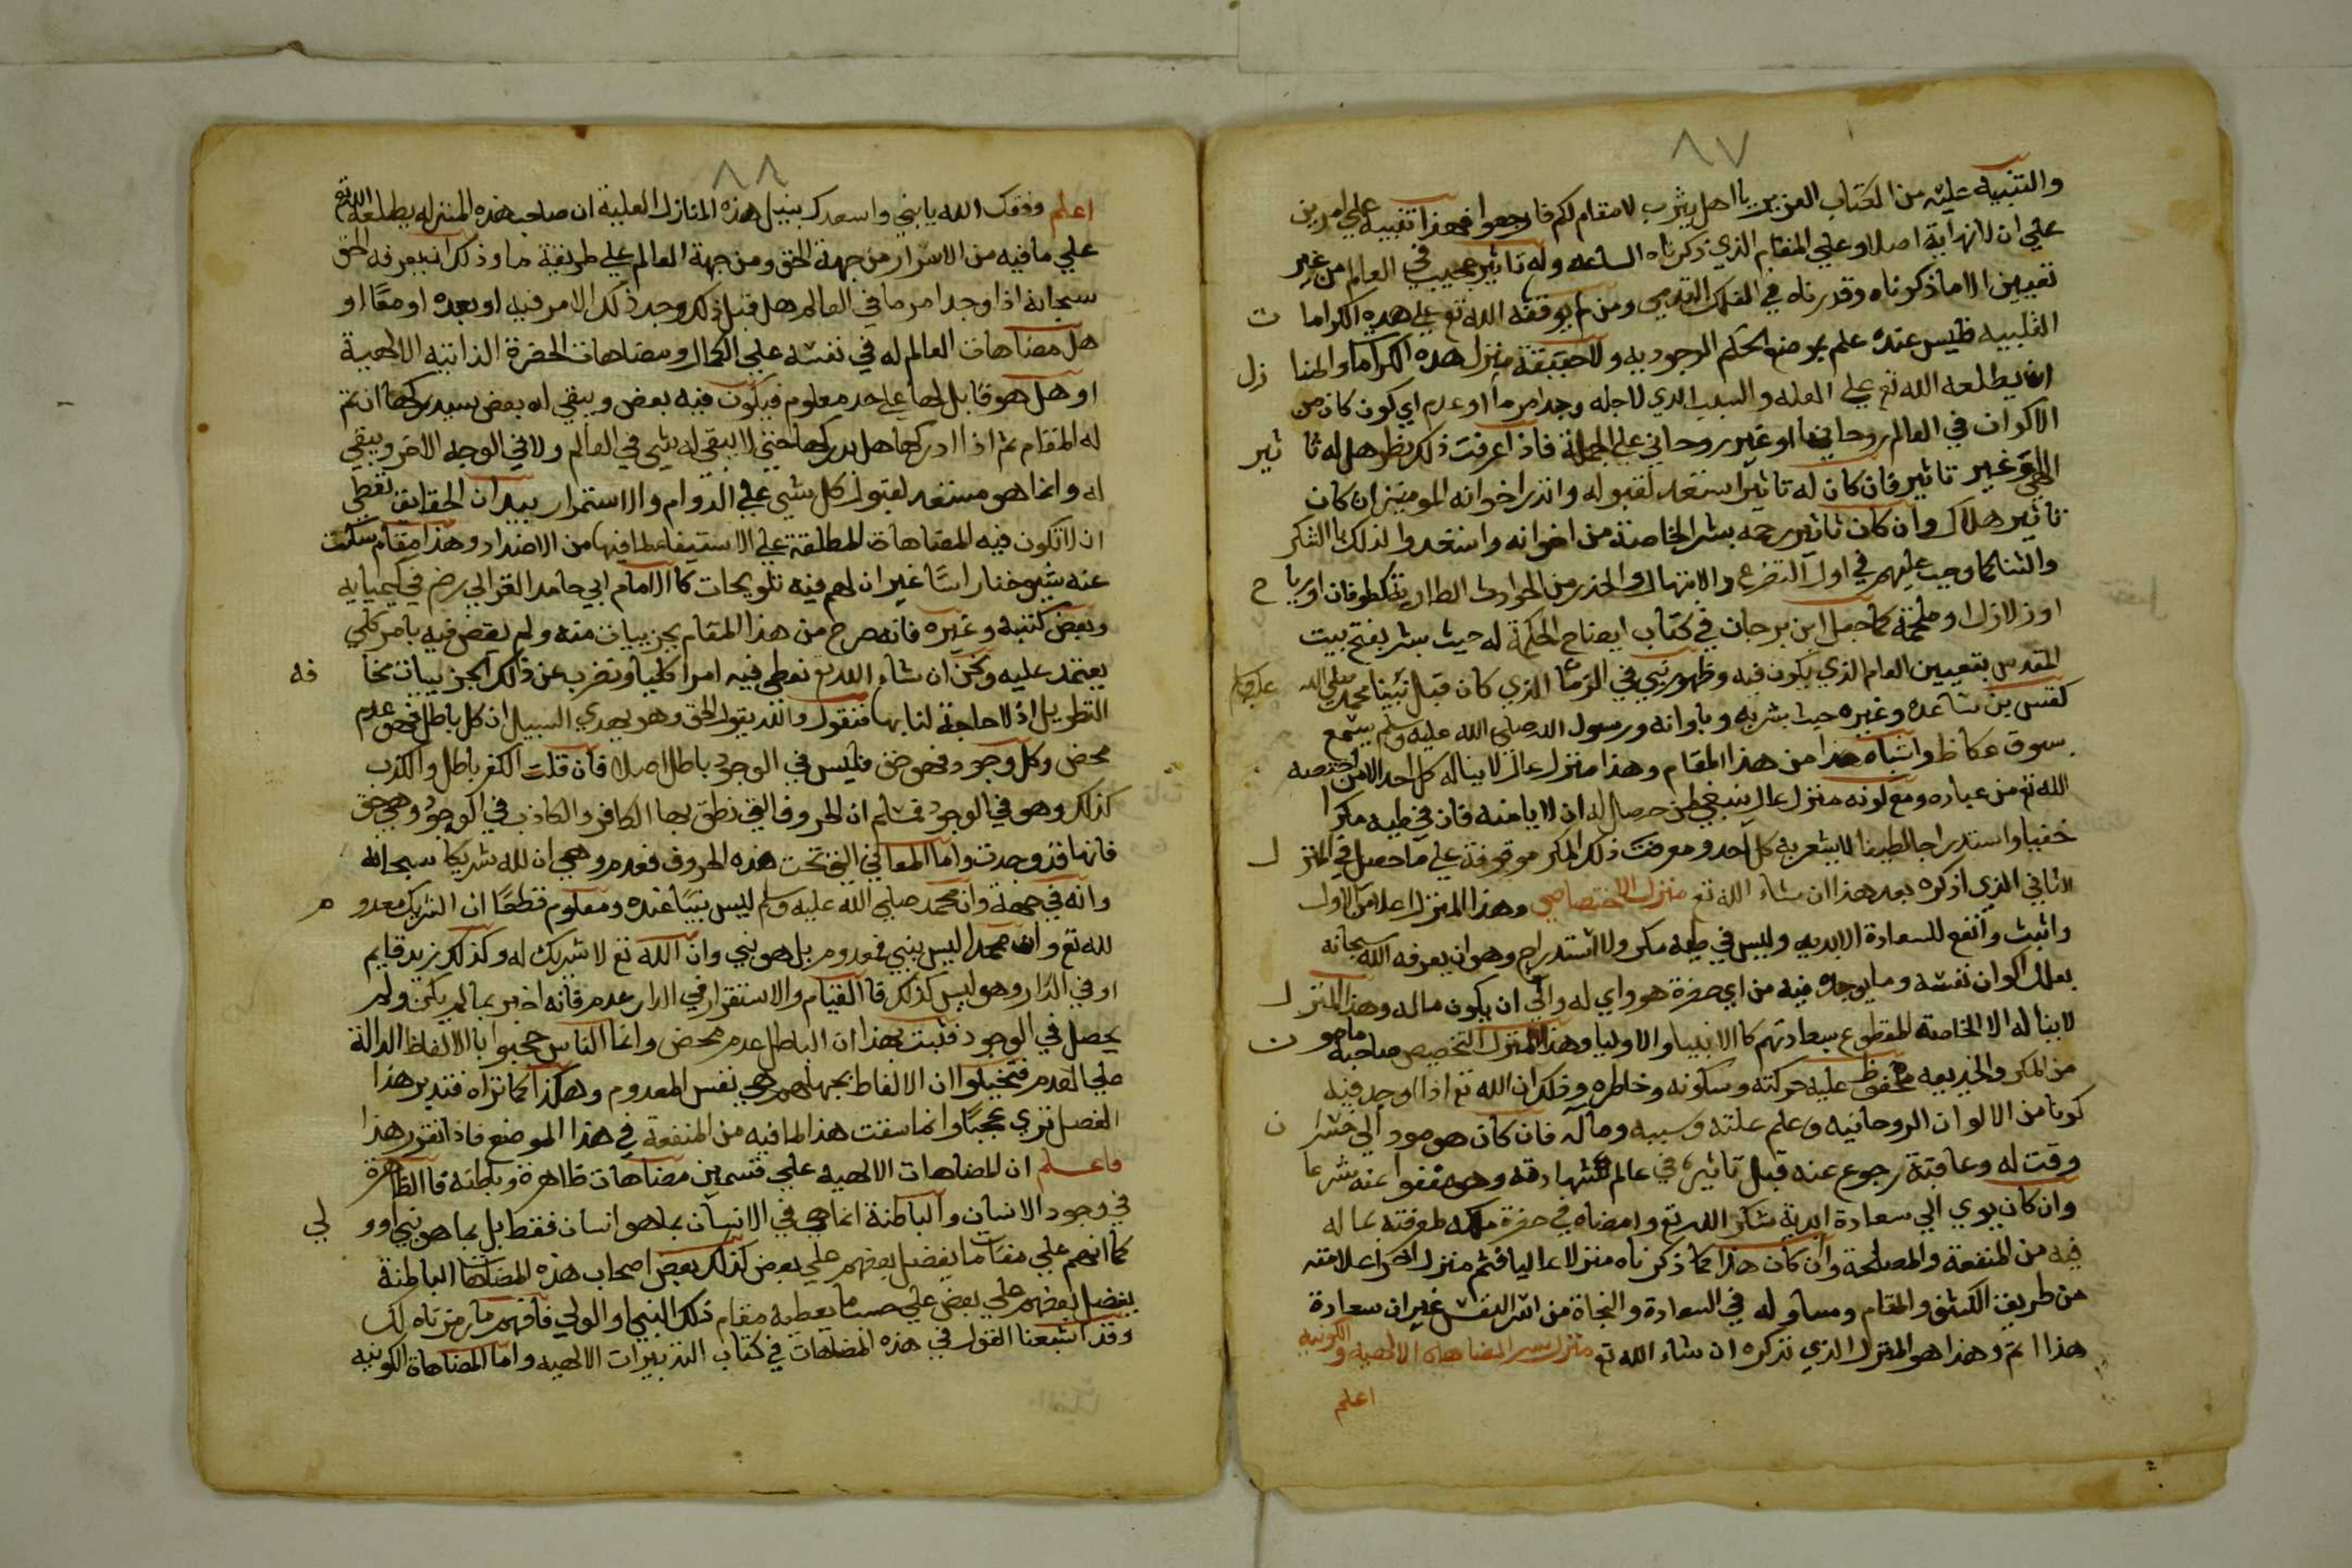 ٨٧
والتنبيه عليه من الكتاب العزيز يا اهل يثرب لا مقام لكم فارجعوا فهذا تنبيه علي امرين
علي ان لا نهاية اصلا وعلي المقام الذي ذكرناه الساعه وله تاثير عجيب في العالم من غير
تعيين الا ما ذكرناه وقدرناه في الفلك القدمي ومن لم يوفقه الله تع علي هذه الكراما ت
القلبيه فليس عنده علم بموضع الحكم الموجود به ولا حقيقة منزل هذه الكراما والمنا زل
ان يطلعه الله تع علي العله والسبب الذي لاجله وجد امر ما او عدم اي كون كان من
الاكوان في العالم روحانيا او غير روحاني علي الجملة فاذا عرفت ذلك نظر هل له تا ثير
الهي او غير تاثير فان كان له تاثير استعد لقبوله وانذر اخوانه المومنين ان كان
تاثير هلاك وان كان تاثير رحمه بشر الخاصة من اخوانه واستعدوا لذلك بالشكر
والثنا كما وجب عليهم في اول التضرع والابتهال والحذر من الحوادث الطارية كطوفان او ريا ح
او زلازل او ملحمة كما جعل ابن برجان في كتاب ايضاح الحكمة له حيث بشر بفتح بيت
المقدس بتعيين العام الذي يكون فيه وظهور نبي في الزمان الذي كان قبل نبينا محمد صلي الله عليه وسلم
كقس بن ساعدة وغيره حيث بشر به وباوانه ورسول الله صلي الله عليه وسلم يسمع
سوق عكاظ واشباه هذا من هذا المقام وهذا منزل عال لا يناله كل احد الا من اختصه
الله تع من عباده ومع كونه منزل عال ينبغي لمن حصل له ان لا يامنه فان في طيه مكرا
خفيا واستدراجا لطيفا لا يشعر به كل احد ومعرفة ذلك المكر موقوفة علي ما حصل في المنز ل
الثاني الذي اذكره بعد هذا ان شاء الله تع منزل الاختصاصي وهذا المنزل اعلا من الاول
واثبت وانفع للسعادة الابديه وليس في طيه مكر ولا استدراج وهو ان يعرفه الله سبحانه
بعلل اكوان نفسه وما يوجد فيه من اي حضرة هو واي له والي ان يكون ماله وهذا المنز ل
لا يناله الا الخاصة المقطوع بسعادتهم كالانبيا والاوليا وهذا المنزل التخصيص صاحبه مامو ن
من المكر والخديعه محفوظ عليه حركته وسكونه وخاطره وذلك ان الله تع اذا اوجد فيه
كونا من الالوان الروحانيه وعلم علته وسببه وماله فان كان هو مود الي خسرا ن
وقت له وعاقبة رجوع عنه قبل تاثيره في عالم شهادته وهو معفوا عنه شرعا
وان كان يودي الي سعادة ابدية شكر الله تع وامضاه في حضرة ملكه لمعرفته بما له
فيه من المنفعة والمصلحة وان كان هذا كما ذكرناه منزلا عاليا فثم منزل اخر اعلا منه
من طريق الكشف والمقام ومساو له في السعادة والنجاة من اشر النفس غير ان سعادة
هذا اتم وهذا هو المنزل الذي نذكره ان شاء الله تع منزل سر المضاهاة الالهيه والكونيه
اعلم
٨٨
اعلم وفقك الله يا بني واسعدك بنيل هذه المنازل العلية ان صاحب هذه المنزله يطلعه الله تع
علي ما فيه من الاسرار من جهة الحق ومن جهة العالم علي طريقة ما وذلك ان يعرفه الحق
سبحانه اذا وجد امر ما في العالم هل قبل ذلك وجد ذلك الامر فيه او بعده او معا او
هل مضاهات العالم له في نفسه علي الكمال ومضاهات الحضرة الذاتيه الالهية
او هل هو قابل لها علي حد معلوم فيكون فيه بعض ويبقي له بعض سيدركها ان تم
له المقام ثم اذا ادركها هل يدركها حتي لا يبقي له شي في العالم ولا في الوجه الاخر ويبقي
له وانما هو مستعد لقبول كل شي علي الدوام والاستمرار بيد ان الحقايق تعطي
ان لا تكون فيه المضاهات المطلقة علي الاستيفا لما فيها من الاضداد وهذا مقام سكت
عنه شيوخنا راسا غير ان لهم فيه تلويحات كالامام ابي حامد الغزالي رضي في كيميايه
وبعض كتبه وغيره فانه صرح من هذا المقام بجزييات منه ولم يقض فيه بامر كلي
يعتمد عليه ونحن ان شاء الله تع نعطي فيه امرا كليا ونضرب عن ذلك الجزييات مخا فه
التطويل اذ لا حاجة لنا بها فنقول والله يقول الحق وهو يهدي السبيل ان كل باطل فهو عدم
محض وكل وجود فهو حق فليس في الوجود باطل اصلا فان قلت الكفر باطل والكذب
كذلك وهو في الوجود فسلم ان الحروف التي نطق بها الكافر والكاذب في الوجود وهي حق
فانها قد وجدت واما المعاني التي تحت هذه الحروف فعدم وهي ان لله شريكا سبحانه
وانه في جهة وان محمد صلي الله عليه وسلم ليس نبيا عنده ومعلوم قطعا ان الشريك معدو م
لله تع وان محمدا ليس بنبي فمعدوم بل هو نبي وان الله تع لا شريك له وكذلك زيد قايم
او في الدار وهو ليس كذلك فالقيام والاستقرار في الدار عدم فانه اخبر بما لم يكن ولم
يحصل في الوجود فثبت بهذا ان الباطل عدم محض وانما الناس حجبوا بالالفاظ الدالة
علي العدم فتخيلوا ان الالفاظ بجهلهم هي نفس المعدوم وهكذا كما تراه فتدبر هذا
الفصل تري عجبا وانما سقت هذا لما فيه من المنفعة في هذا الموضع فاذا تقرر هذا
فاعلم ان المضاهات الالهيه علي قسمين مضاهات ظاهرة وباطنه فالظاهرة
في وجود الانسان والباطنة انما هي في الانسان بما هو انسان فقط بل بما هو نبي او و لي
كما انهم علي مقامات يفضل بعضهم علي بعض كذلك بعض اصحاب هذه المضاهات الباطنة
يفضل بعضهم علي بعض علي حسب ما يعطيه مقام ذلك النبي او الولي فافهم ما رمزناه لك
وقد اشبعنا القول في هذه المضاهات في كتاب التدبيرات الالهيه واما المضاهاة الكونيه